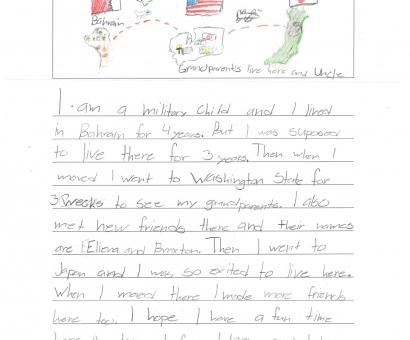 Bahrain
Grandparents live here and Uncle
I am a military child and I lived
in Bahrain for 4 years. But I was suposed
to live there for 3 years. Then when I
moved I went to Washington State for
3 weeks to see my grandparents. I also
met new friends there and their names
are Eliena and Braxton. Then I went to
Japan and I was so exited to live here.
When I moved there I made more friends
here too. I hope I have a fun time